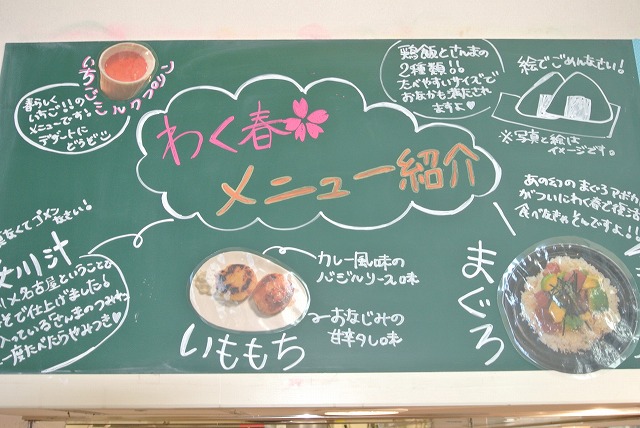 いちごミルクプリン
春らしく
いちご!!の
メニューです!
デザートに
どうぞ
わく春
メニュー紹介
鶏飯とさんまの
2種類!!
たべやすいサイズで
おなかも満たされ
ますよ♥
絵でごめんなさい!
※写真と絵は
イメージです。
あの幻のまぐろアボカ
がついにわく春で復活
食べなきゃそんですよ!!
まぐろ
なくてゴメン
なさい!
女川汁
名古屋ということ
そで仕上げました!
入っている「さんまのつみれ」
一度たべたらやみつき♥
いももち
カレー風味の
バジルソース味
おなじみの
甘辛タレ味